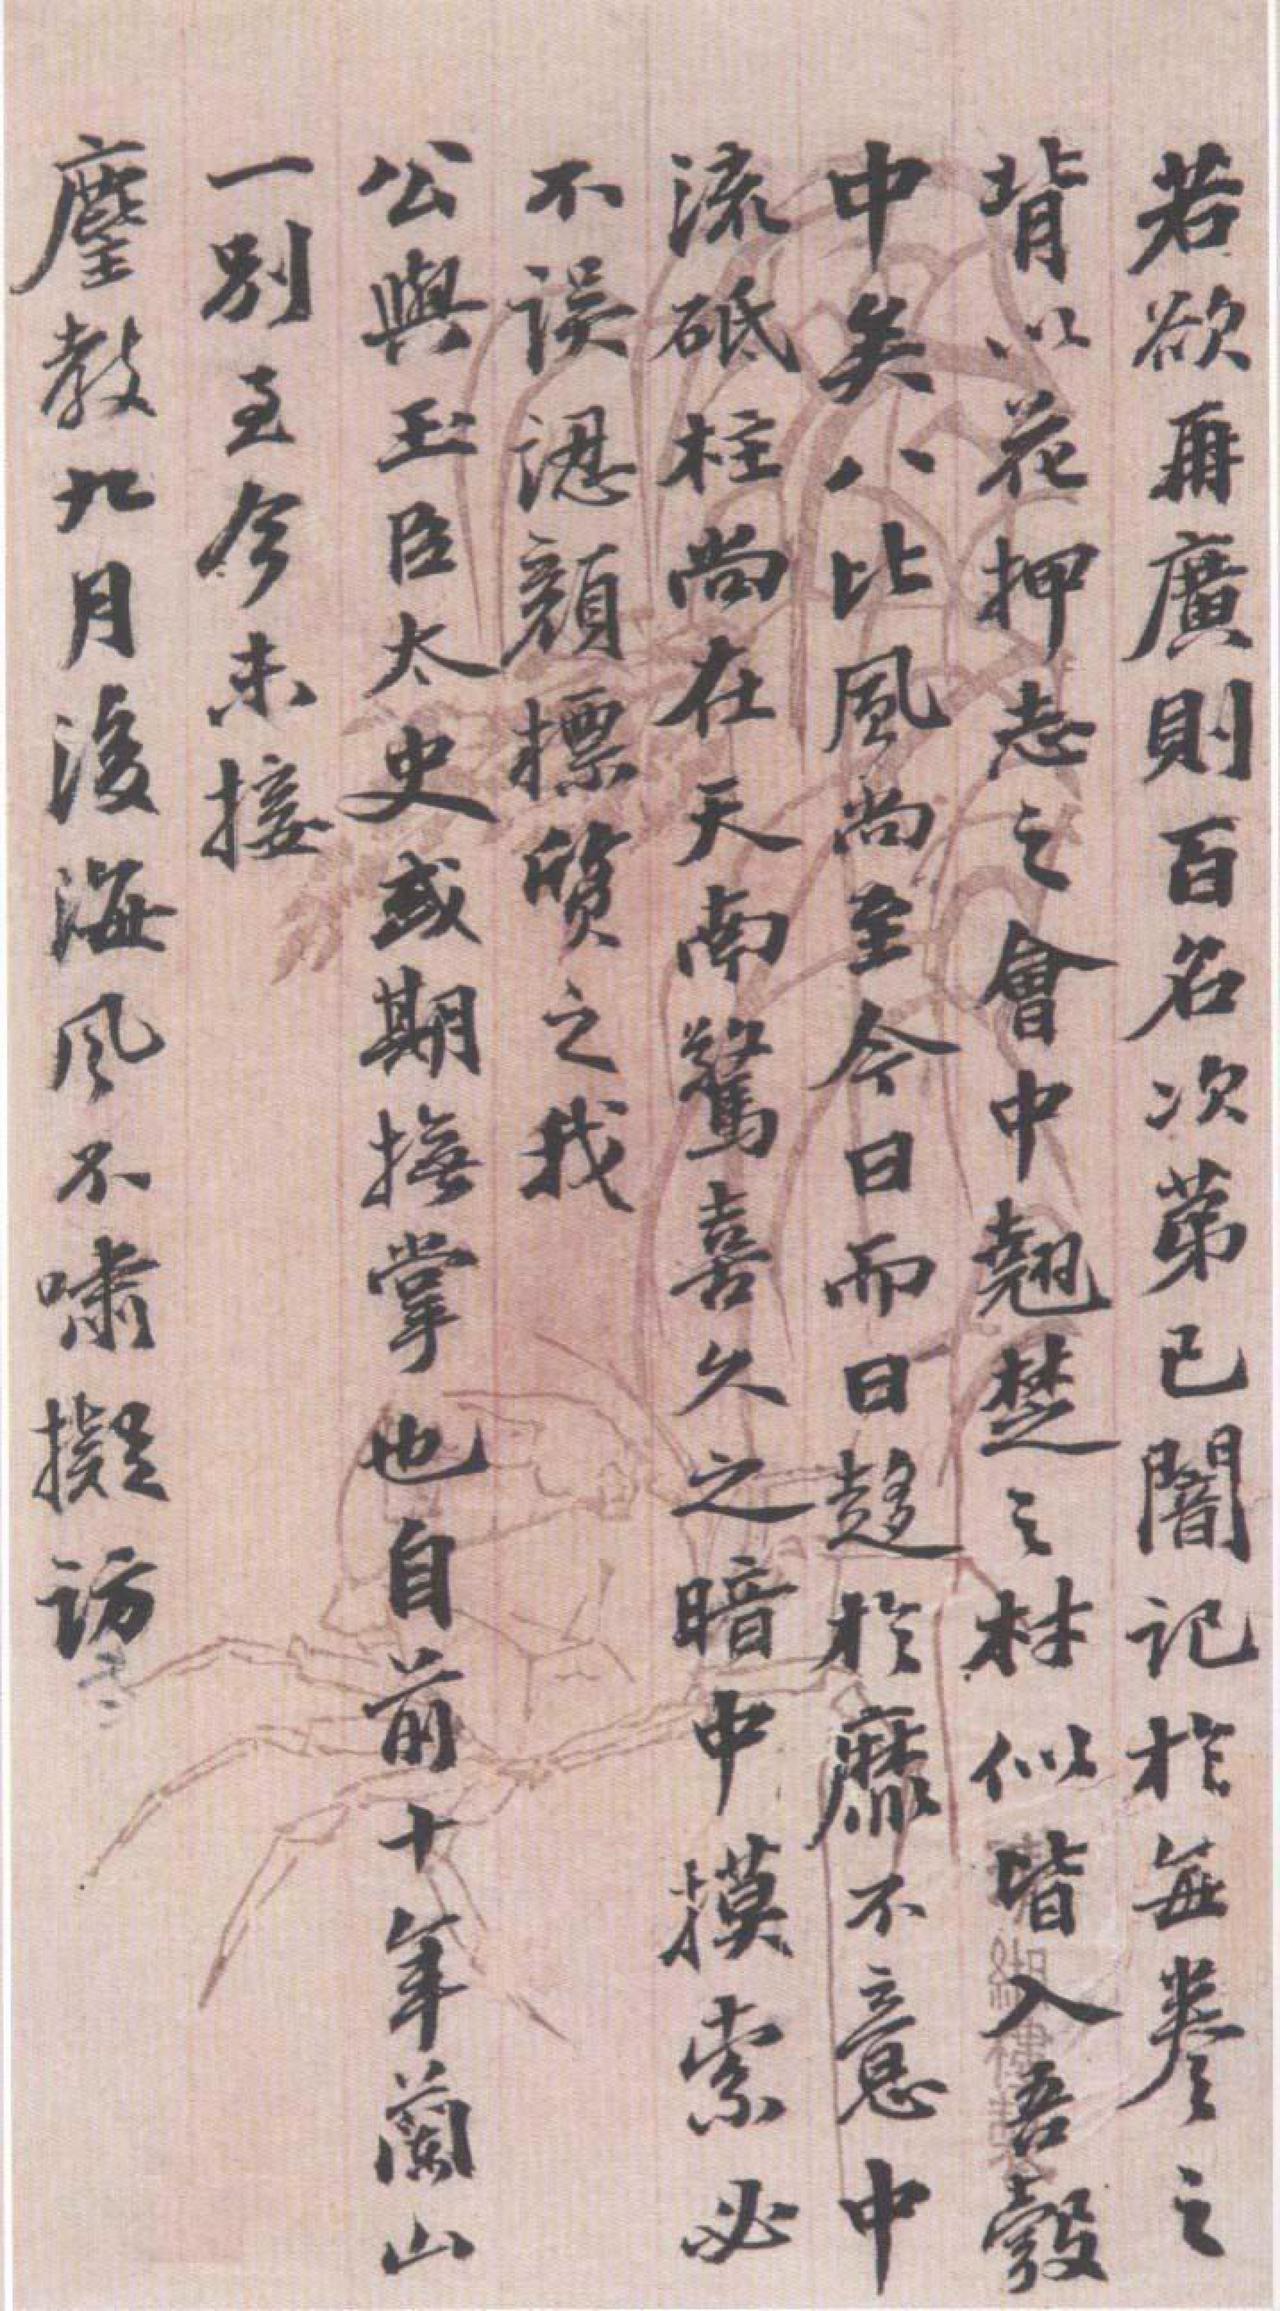 若欲再廣則百名次第已闇記於每卷之
背以花押志之會中翹楚之材似皆入吾彀
中矣八比風尚至今日而日趍於靡不意中
流砥柱尚在天南驚喜久之暗中摸索必
不誤認顏標質之我
公與玉臣太史或期撫掌也自前十年蘭山
一別至今未接
麈教九月後海風不嘯擬訪